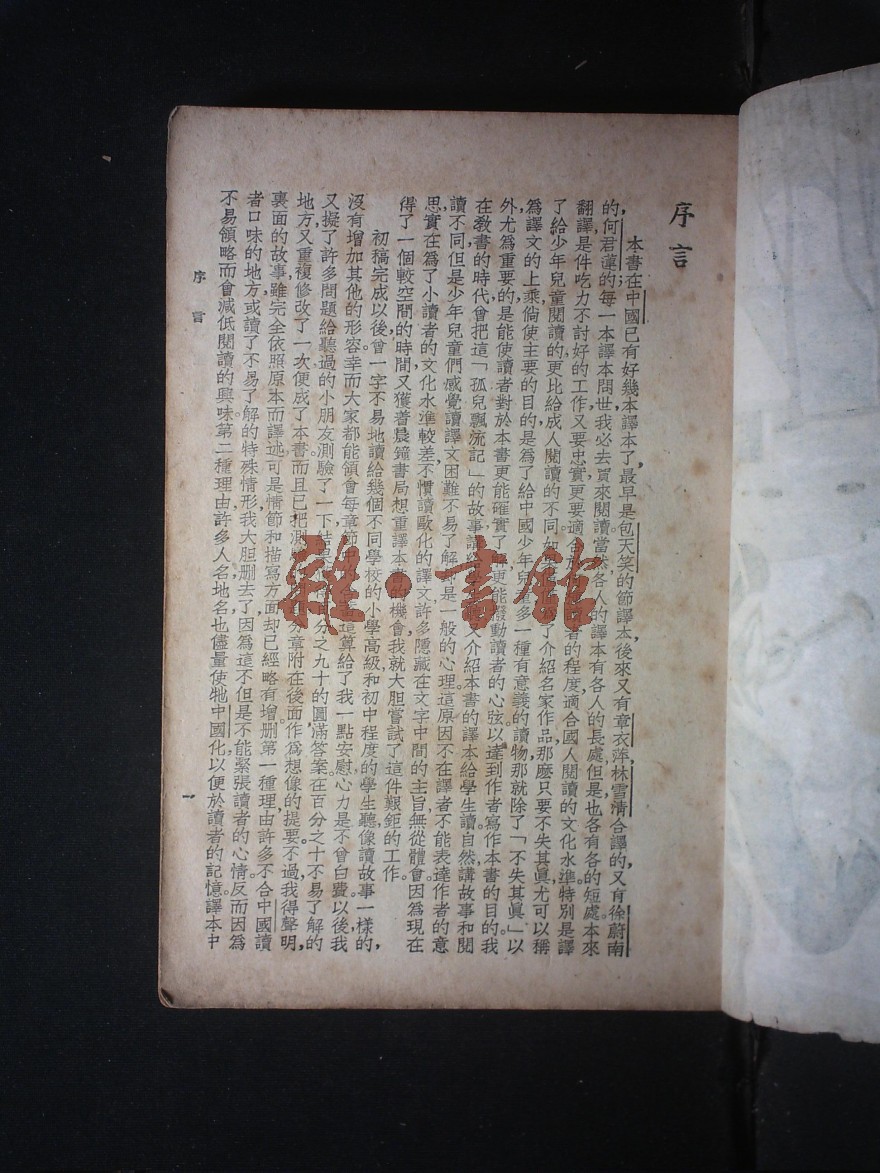 序言
本書在中國已有好幾本譯本了,最早是包天笑的節譯本,後來又有章衣萍,林雪清合譯的,又有徐蔚南
的,何君蓮的每一本譯本問世,我必去買來閱讀。當然,各人的譯本有各人的長處,但是也各有各的短處。本來
翻譯是件吃力不討好的工作,又要忠實,更要適合於讀者的程度,適合國人閱讀的文化水準。特別是譯
了給少年兒童閱讀的,更比給成人閱讀的不同。如果為了介紹名家作品,那麼只要不失其眞,尤可以稱
爲譯文的上乘,倘使主要的目的是爲了給中國少年兒多一種有意義的讀物,那就除了「不失其眞」以
外,尤爲重要的是能使讀者對於本書更能確實了更能撥動讀者的心弦,以達到作者寫作本書的目的。我
在敎書的時代,曾把這「孤兒飄流記」的故事講又介紹本書的譯本給學生讀。自然,講故事和閱
讀不同,但是少年兒童們感覺讀譯文困難,不易了解是一般的心理。這原因不在譯者不能表達作者的意
思,實在爲了小讀者的文化水準較差,不慣讀歐化的譯文,許多隱藏在文字中間的主旨,無從體會。因爲現在
得了一個較空間的時間,又獲着晨鐘書局想重譯本書的機會,我就大胆嘗試了這件艱鉅的工作。
初稿完成以後,曾一字不易地讀給幾個不同學校的小學高級和初中程度的學生聽,像讀故事一樣的,
沒有增加其他的形容,幸而大家都能領會每章節這算給了我一點安慰,心力是不曾白費。以後我
又擬了許多問題給聽過的小朋友測驗了一下,結果分之九十的圓滿答案,在百分之十不易了解的
地方,又重複修改了一次,便成了本書。而且已把測分章附在後面,作爲想像的提要。不過,我得聲明,
裏面的故事,雖完全依照原本而譯述,可是情節和描寫方面,却已經略有增删。第一種理由,許多不合中國讀
者口味的地方,或讀了不易了解的特殊情形,我大胆删去了,因爲這不但是不能緊張讀者的心情,反而因爲
不易領略而會減低閱讀的興味。第二種理由,許多人名地名,也儘量使牠中國化,以便於讀者的記憶。譯本中
序言
一
雜·書館